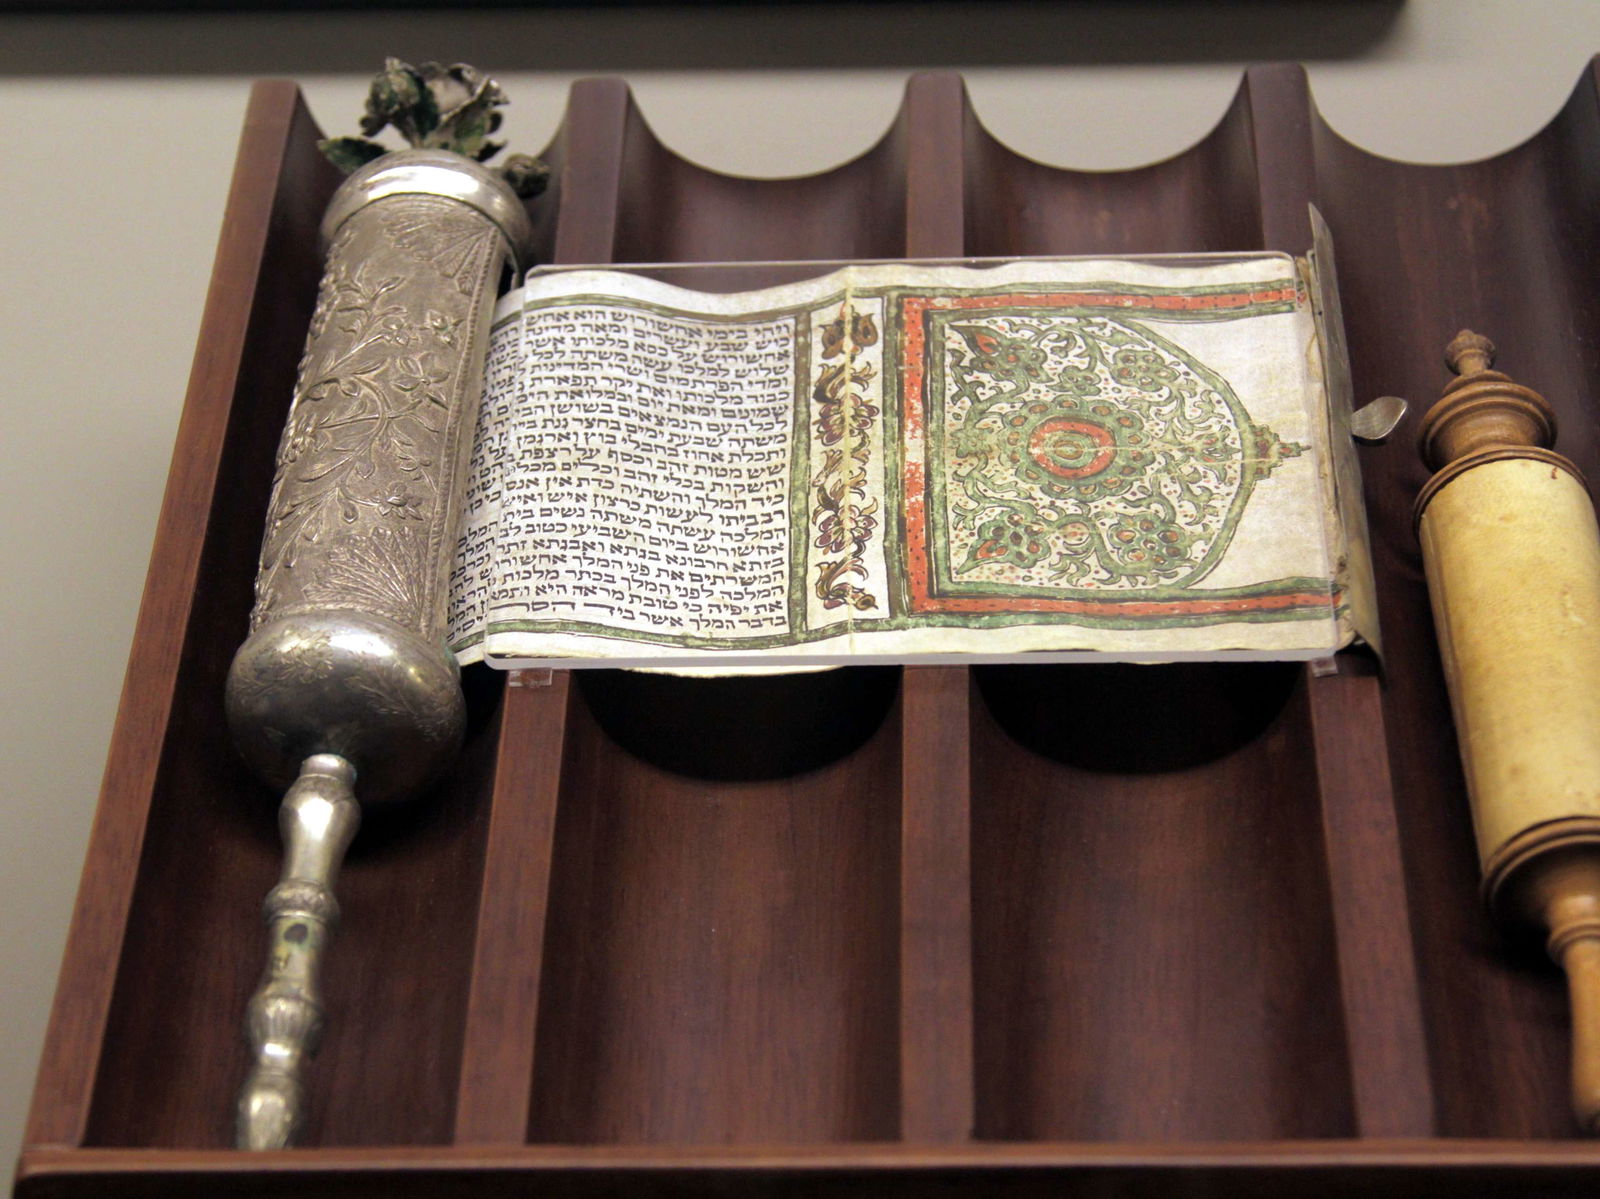 ויהי בימי אחשורוש הוא אחש
כוש שבע ועשרים ומאה מדינה
אחשורוש על כסא מלכותו אשר
שלוש למלכו עשה משתה לכל
ומדי הפרתמים ושרי המדינות
כבוד מלכותו ואת יקר תפארת
שמונים ומאת יום ובמלואת הימים
לכל העם הנמצאים בשושן הבי
משתה שבעת ימים בחצר גנת בי
ותכלת אחוז בחבלי בוץ וארגמן
שש מטות זהב וכסף על רצפת
והשקות בכלי זהב וכלים מכלי
כיד המלך והשתיה כדת אין אנס כי כן
רב ביתו לעשות כרצון איש ואיש
המלכה עשתה משתה נשים בית המלכ
אחשורוש ביום השביעי כטוב לב המלך
בזתא חרבונא בגתא ואבגתא זתר
המשרתים את פני המלך אחשורוש
המלכה לפני המלך בכתר מלכות
את יפיה כי טובת מראה היא ותמאן
בדבר המלך אשר ביד הסר